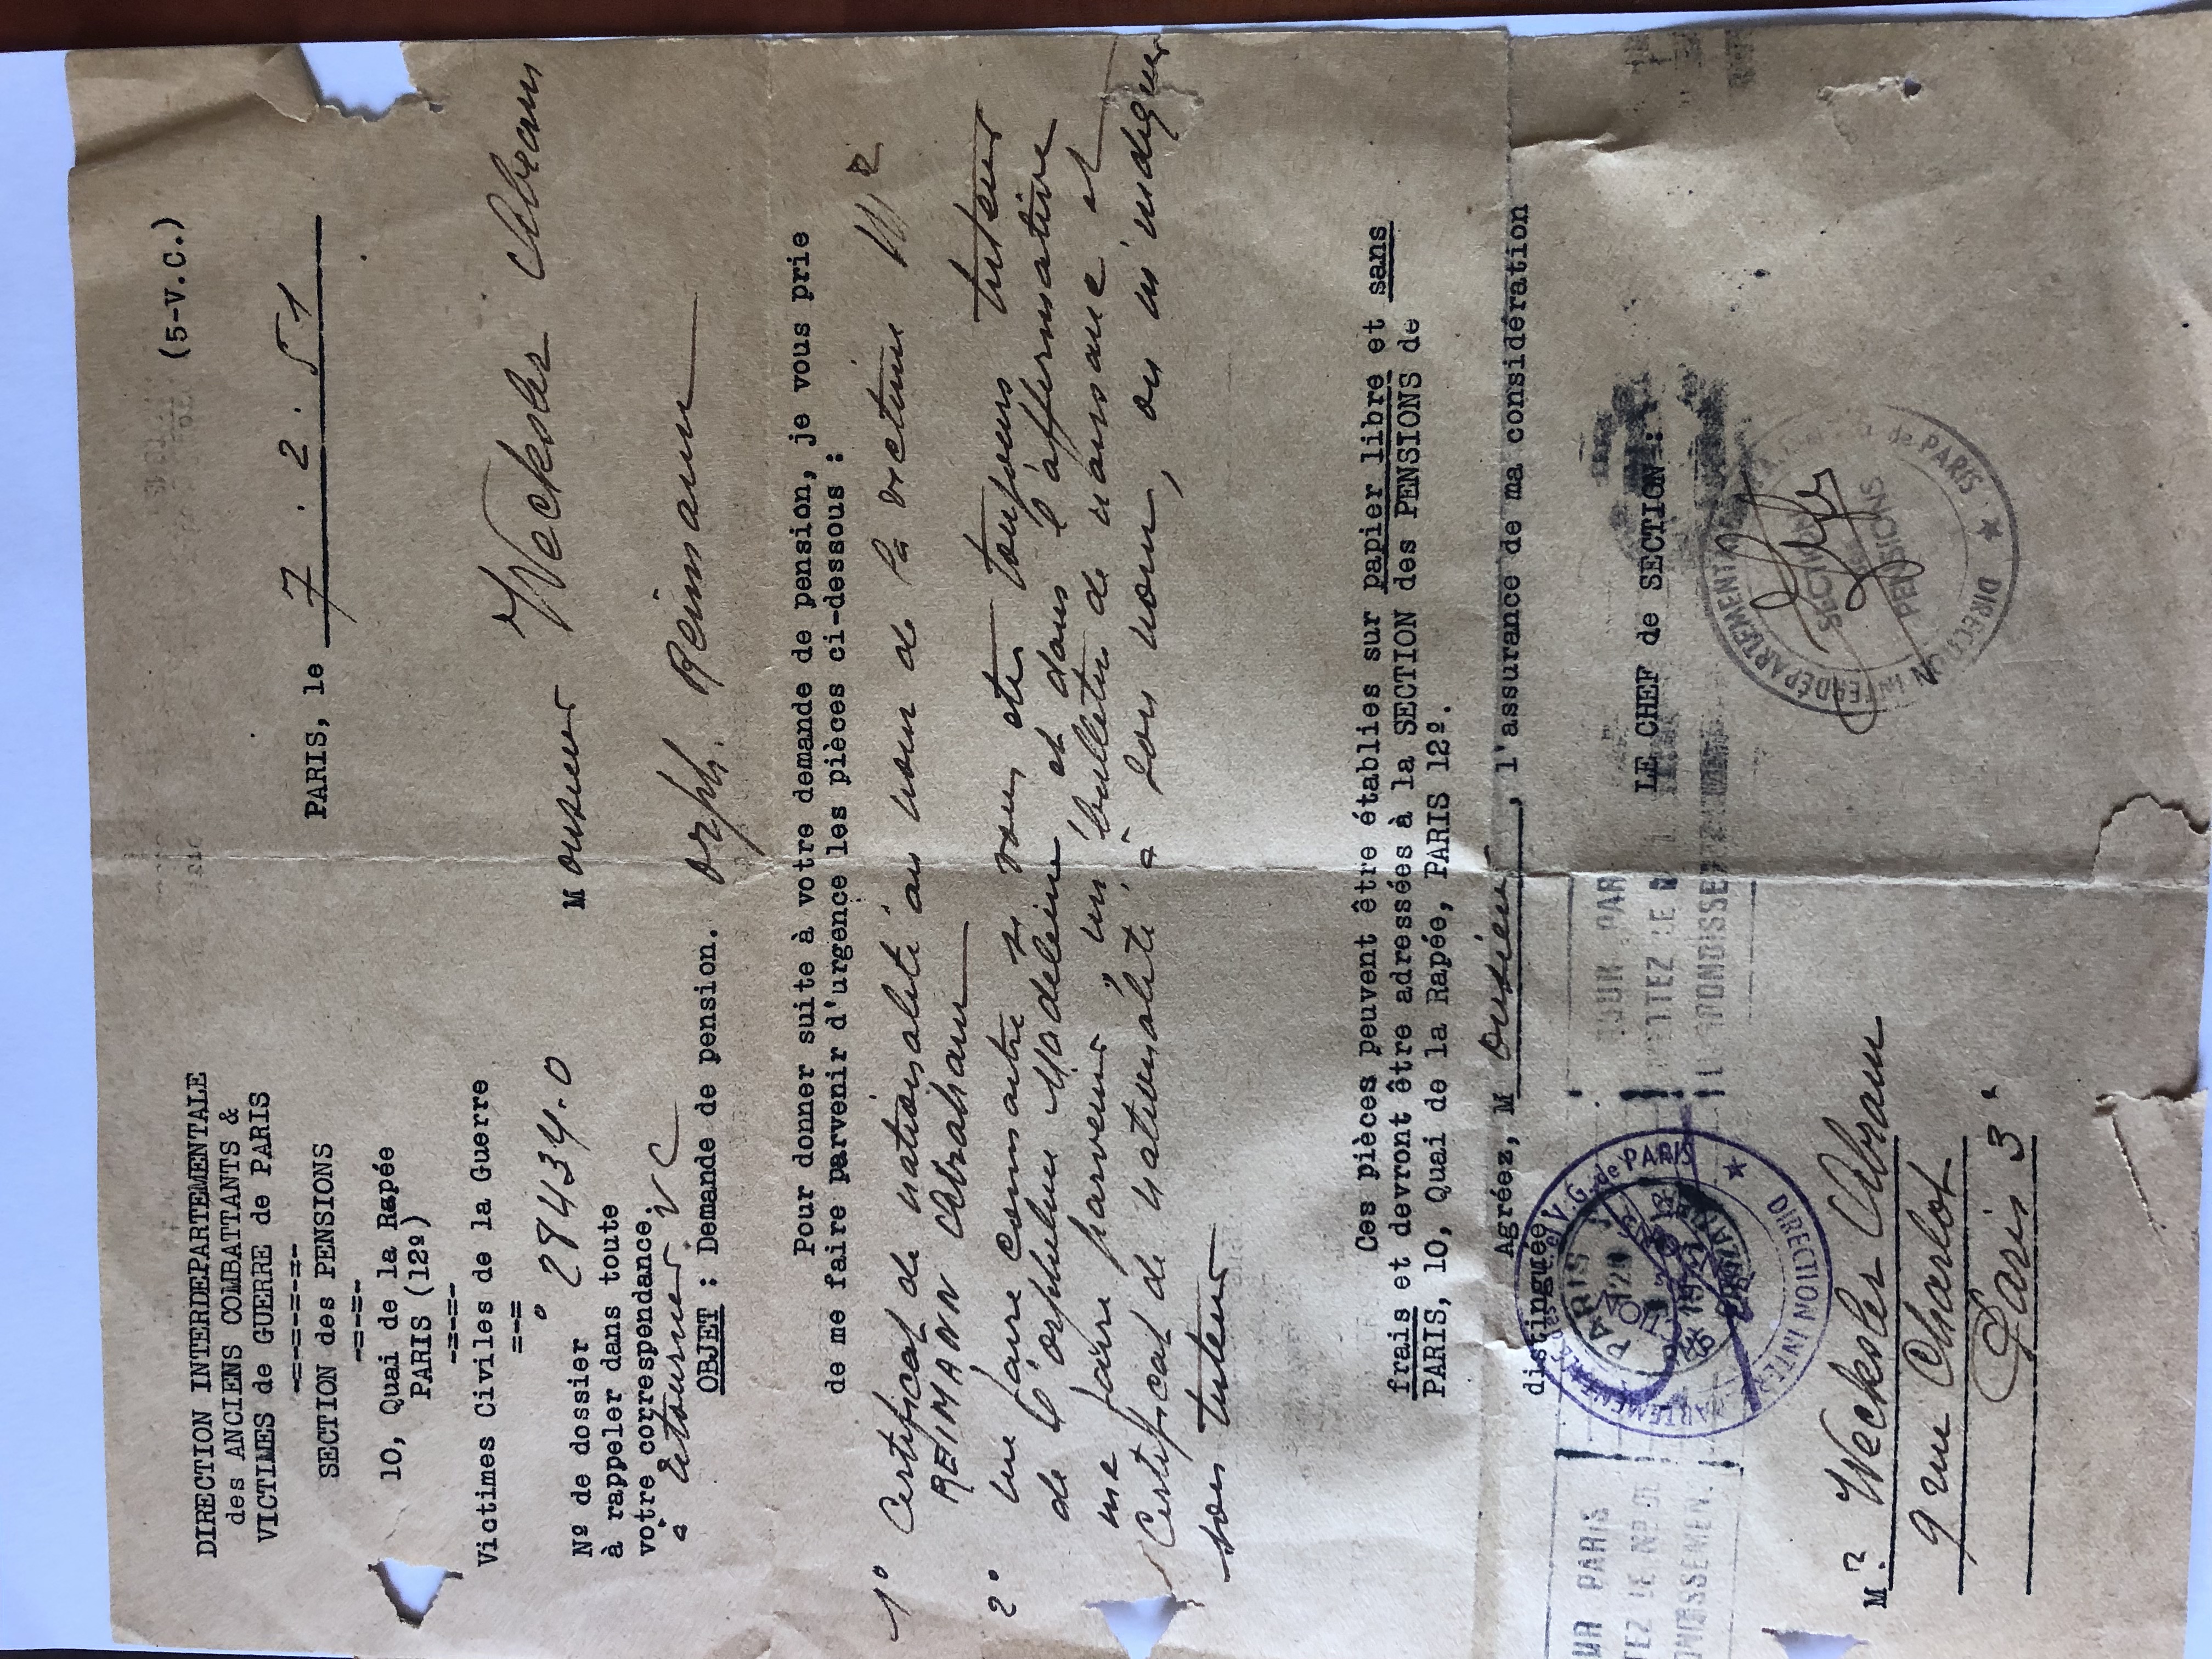 (5-V.C.)
DIRECTION INTERDEPARTEMENTALE
des ANCIENS COMBATTANTS &
VICTIMES de GUERRE de PARIS
-=-=-=-=-
SECTION des PENSIONS
-=-=-
10, Quai de la Rapée
PARIS (12º)
-=-=-
Victimes Civiles de la Guerre
=-=
PARIS, le 7 . 2 . 51
Nº de dossier ° 28434.0
à rappeler dans toute
votre correspendance.
à retourner VC
Monsieur Wecksler Abram
OBJET : Demande de pension. orph. Reimann
Pour donner suite à votre demande de pension, je vous prie
de me faire parvenir d'urgence les pièces ci-dessous :
1° Certificat de nationalité au nom de la victime Mr
REIMANN Abraham
2° me faire connaitre si vous etes toujours tuteur
de l'orpheline Madeleine, et dans l'affirmative
me faire parvenir, un bulletin de naissance et
Certificat de nationalité à son nom, ou m'indiquer
son tuteur
Ces pièces peuvent être établies sur papier libre et sans
frais et devront être adressées à la SECTION des PENSIONS de
PARIS, 10, Quai de la Rapée, PARIS 12º.
Agréez, Monsieur, l'assurance de ma considération
distinguée.
UR PARIS
TEZ LE Nº DE
ONDISSEMEN
PARIS
V.G. de PARIS
DIRECTION INTER
OUR PAR
ETTEZ LE
RONDISSE
LE CHEF de SECTION :
DIRECTION INTERDÉPARTEMENTALE
de PARIS
SECTION
des
PENSIONS
Mr Wecksler Abram
9 rue Charlot
Paris 3e